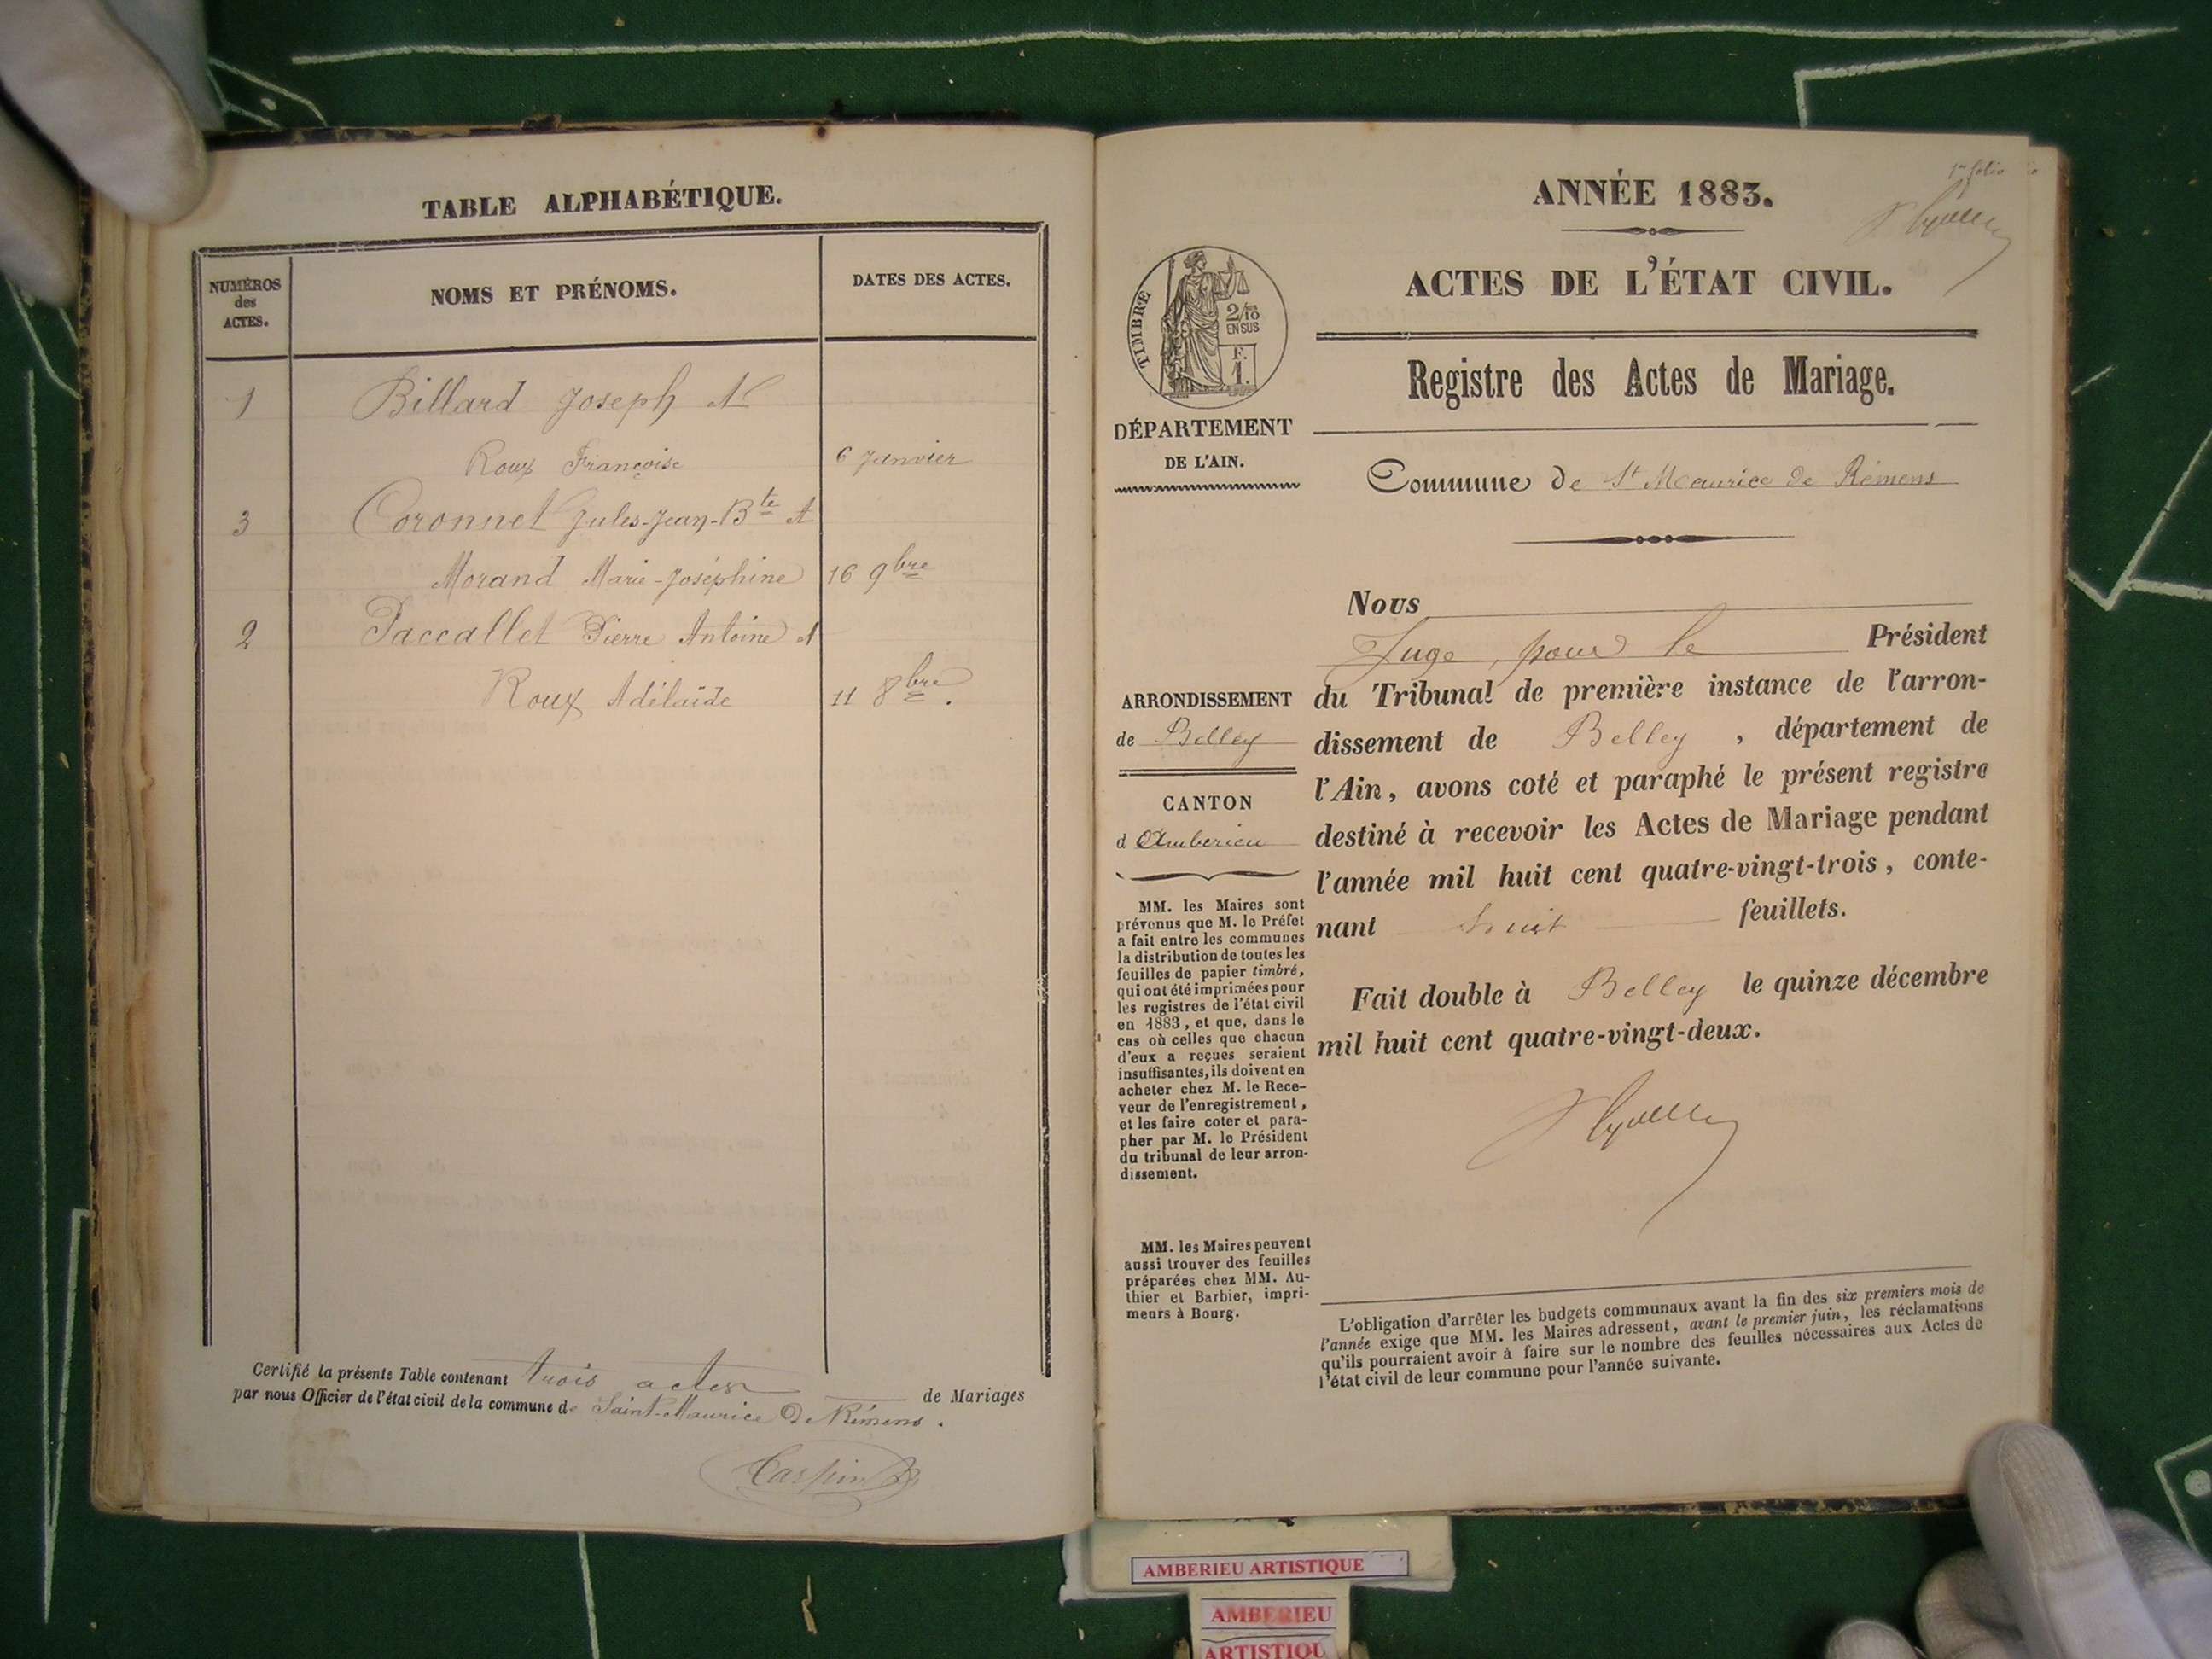 TABLE ALPHABÉTIQUE.
NUMÉROS
des
ACTES.
NOMS ET PRÉNOMS.
DATES DES ACTES.
1 Billard Joseph &
Roux Françoise 6 Janvier
3 Coronnet Jules-Jean-Bte &
Morand Marie-Joséphine 16 9bre
2 Paccallet Pierre Antoine &
Roux Adélaïde 11 8bre.
Certifié la présente Table contenant trois actes de Mariages
par nous Officier de l'état civil de la commune de Saint-Maurice De Rémens.
1er folio
ANNÉE 1883.
ACTES DE L'ÉTAT CIVIL.
TIMBRE
2/10
EN SUS
F.
1.
Registre des Actes de Mariage.
DÉPARTEMENT
DE L'AIN.
Commune de St Maurice de Rémens
Nous
Juge, pour le Président
du Tribunal de première instance de l'arron-
dissement de Belley, département de
l'Ain, avons coté et paraphé le présent registre
destiné à recevoir les Actes de Mariage pendant
l'année mil huit cent quatre-vingt-trois, conte-
nant huit feuillets.
Fait double à Belley le quinze décembre
mil huit cent quatre-vingt-deux.
ARRONDISSEMENT
de Belley
CANTON
d'Amberieu
MM. les Maires sont
prévenus que M. le Préfet
a fait entre les communes
la distribution de toutes les
feuilles de papier timbré,
qui ont été imprimées pour
les registres de l'état civil
en 1883, et que, dans le
cas où celles que chacun
d'eux a reçues seraient
insuffisantes, ils doivent en
acheter chez M. le Rece-
veur de l'enregistrement,
et les faire coter et para-
pher par M. le Président
du tribunal de leur arron-
dissement.
MM. les Maires peuvent
aussi trouver des feuilles
préparées chez MM. Au-
thier et Barbier, impri-
meurs à Bourg.
L'obligation d'arrêter les budgets communaux avant la fin des six premiers mois de
l'année exige que MM. les Maires adressent, avant le premier juin, les réclamations
qu'ils pourraient avoir à faire sur le nombre des feuilles nécessaires aux Actes de
l'état civil de leur commune pour l'année suivante.
AMBERIEU ARTISTIQUE
AMBERIEU
ARTISTIQU